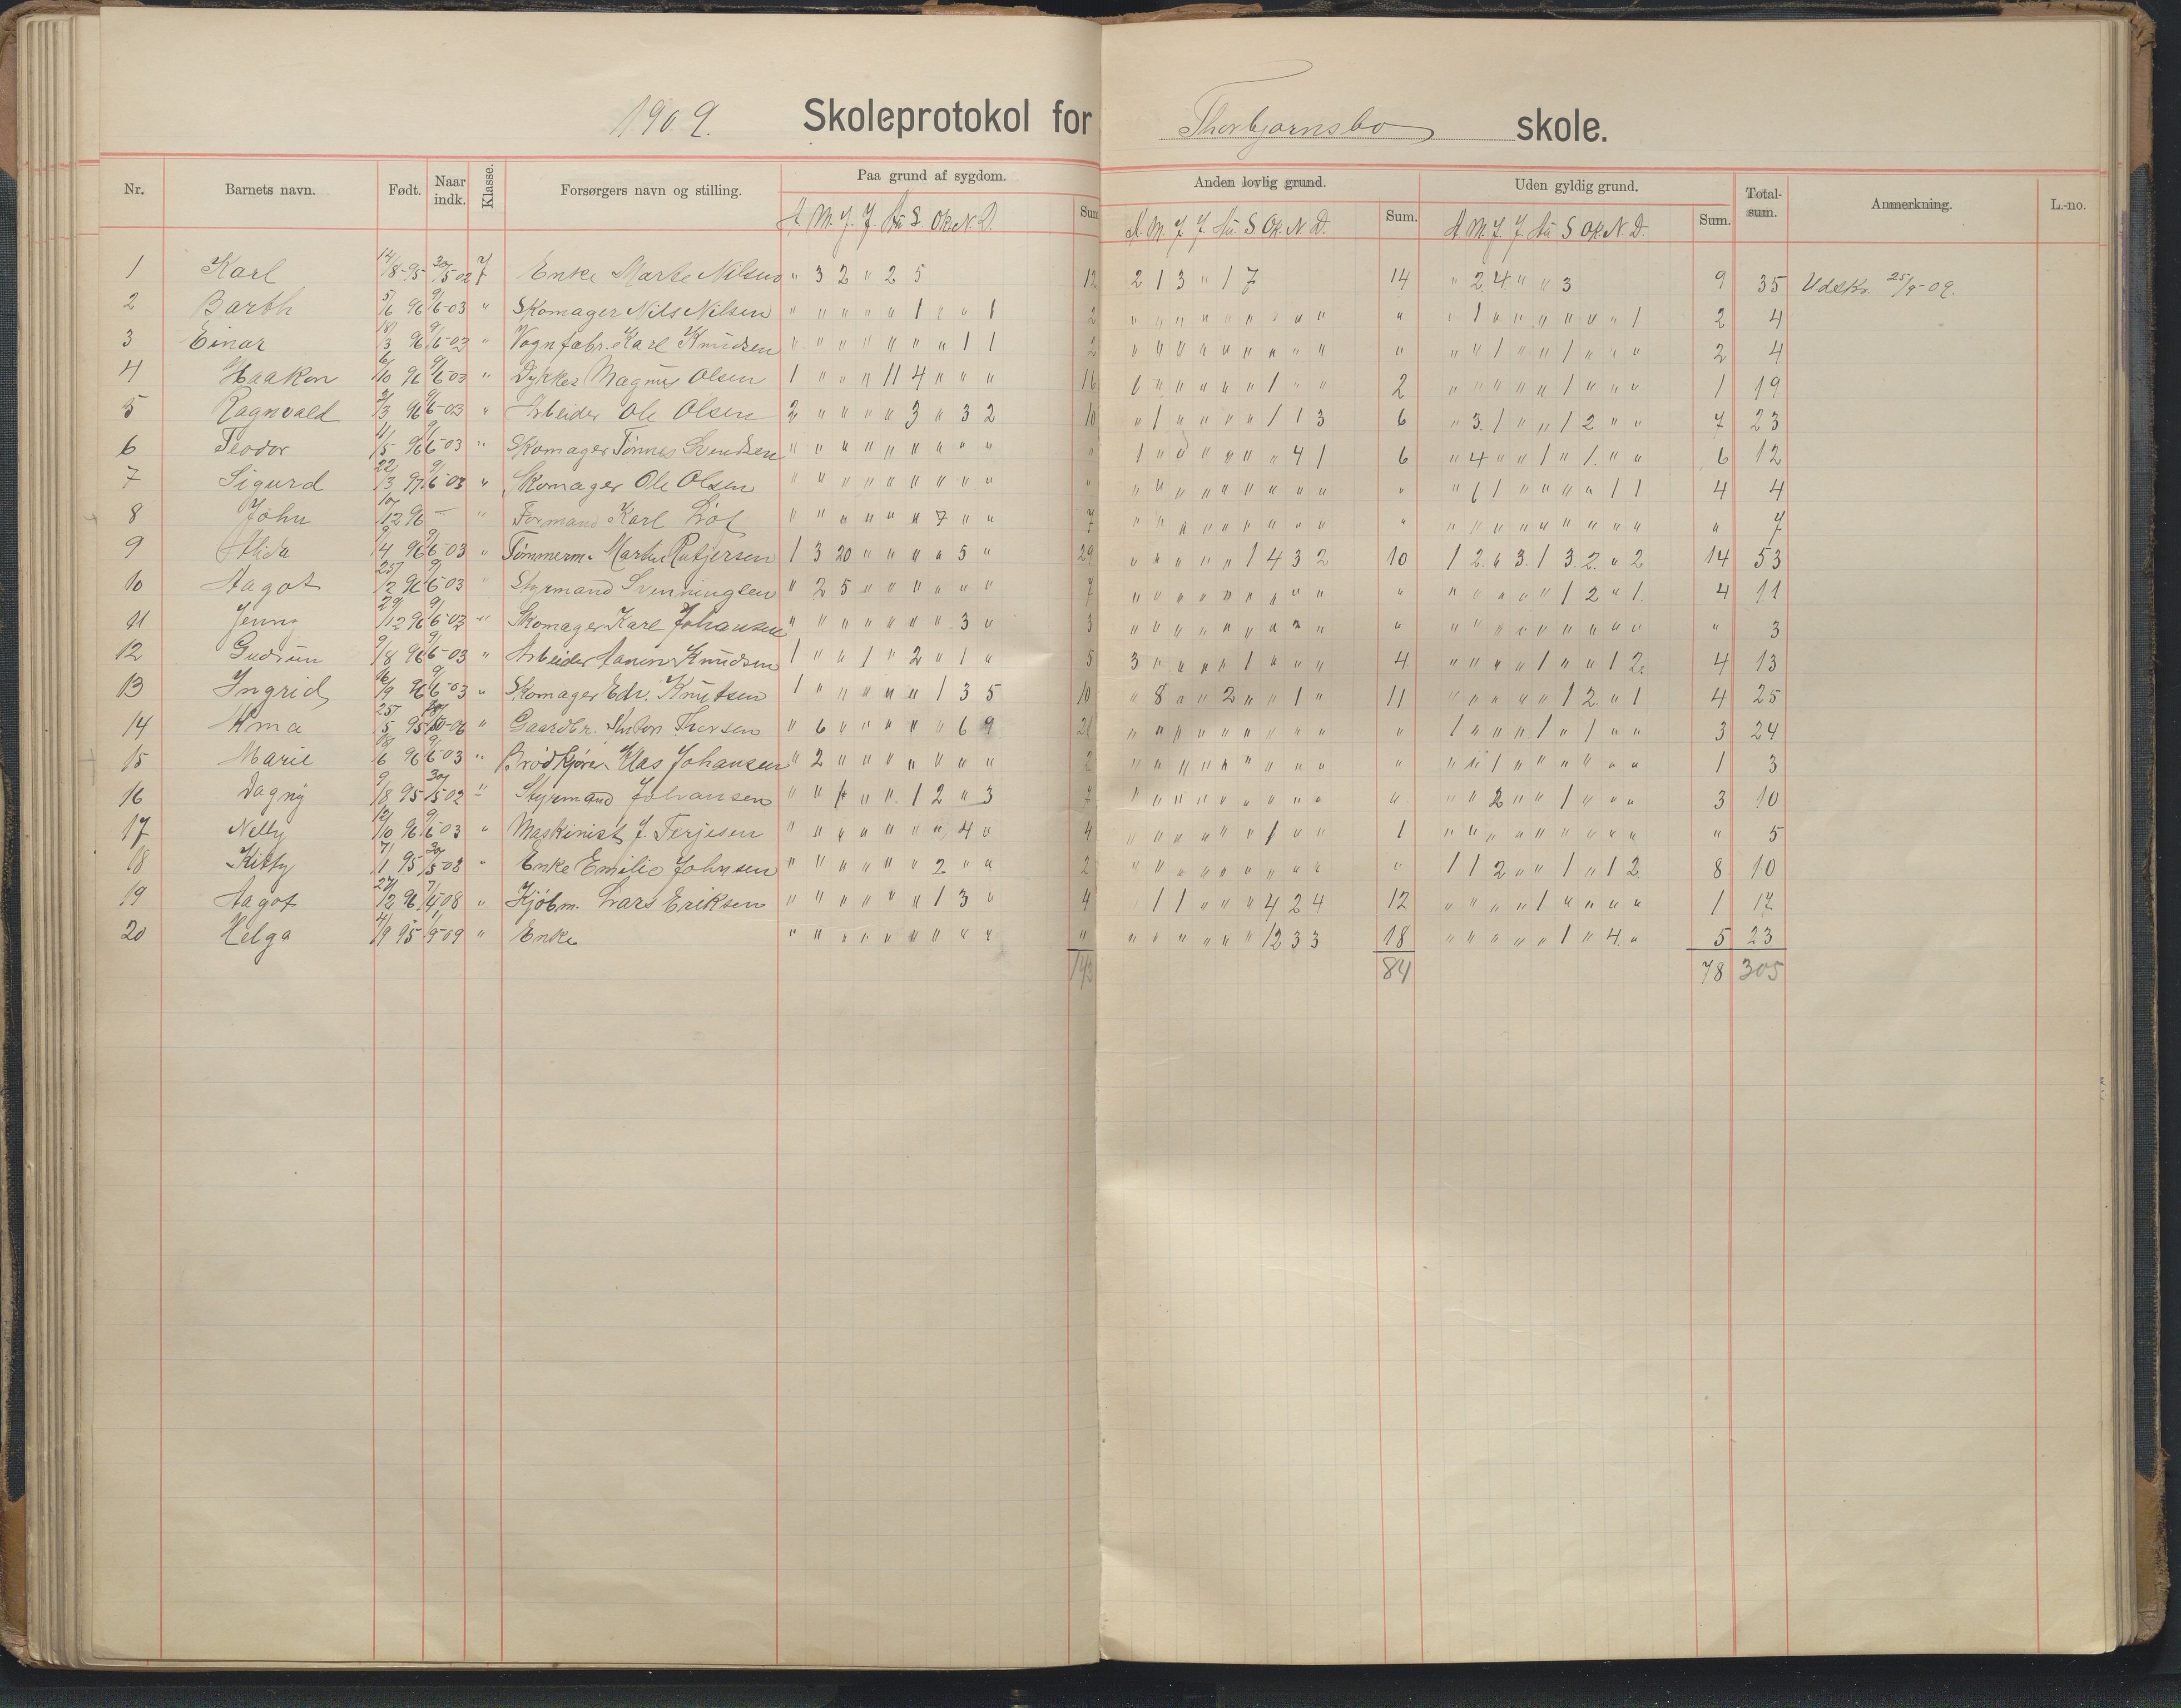 1909. Skoleprotokol for Thorbjørnsbo skole.
Nr. Barnets navn. Født. Naar indk. Klasse. Forsørgers navn og stilling. Paa grund af sygdom. Sum Anden lovlig grund. Sum. Uden gyldig grund. Sum. Total-sum. Anmerkning. L.-no.
A. M. J. J. Au S. Ok. N. D. A. M. J. J. Au. S Ok. N D. A. M. J. J Au S Ok. N. D.
1 Karl 14/8-95 30/5 02 7 Enke Marte Nilsen " 3 2 " 2 5 12 2 1 3 " 1 7 14 " 2 4 " " 3 9 35 Udskr. 25/9-09.
2 Barth 5/6 96 9/6-03 " Skomager Nils Nilsen " " " " " 1 " " 1 2 " " " " " " " " " " " 1 " " " " " " 1 2 4
3 Einar 18/3 96 9/6-03 " Vognfabr. Karl Knudsen " " " " " " " 1 1 2 " " " " " " " " " " " " 1 " " 1 " " " 2 4
4 Haakon 6/10 96 9/6-03 " Dykker Magnus Olsen 1 " " " 11 4 " " " 16 1 " " " " " 1 " " 2 " " " " " 1 " " " 1 19
5 Ragnvald 2/3 96 9/6-03 " Arbeider Ole Olsen 2 " " " " 3 " 3 2 10 " 1 " " " " 1 1 3 6 " 3. 1 " " 1 2 " " 7 23
6 Teodor 11/5 96 9/6-03 " Skomager Tønnes Svendsen " " " " " " " " " " 1 " " " " " " 4 1 6 " 4 " " 1 " 1. " " 6 12
7 Sigurd 22/3 97 9/6-03 " Skomager Ole Olsen " " " " " " " " " " " " " " " " " " " " " 1 1 " " " " 1 1 4 4
8 John 10/12 96 — " Formand Karl " " " " " " 7 " " 7 " " " " " " " " " " " " " " " " " " " " 7
9 Alida 9/4 96 9/6-03 " Tømmerm. 1 3 20 " " " " 5 " 29 " " " " " 1 4 3 2 10 1 2. " 3. 1 3. 2. " 2 14 53
10 Aagot 25/2 96 9/6-03 " Styrmand Svenningsen " 2 5 " " " " " " 7 " " " " " " " " " " " " " " " 1 2 " 1. 4 11
11 Jenny 29/12 96 9/6-03 " Skomager Karl Johansen " " " " " " " 3 " 3 " " " " " " " " " " " " " " " " " " " " 3
12 Gudrun 9/8 96 9/6-03 " Arbeider Knudsen 1 " " 1 " 2 " 1 " 5 3 " " " " 1 " " " 4 " " " " 1 " " 1 2. 4 13
13 Ingrid 16/9 96 9/6-03 " Skomager Edv. Knutsen 1 " " " " " 1 3 5 10 " 8 " " 2 " " 1 " 11 " " " " " 1 2. " 1 4 25
14 Alma 25/5 95 " Gaardbr. Anton Thorsen " 6 " " " " " 6 9 21 " " " " " " " " " " 1 " " " 1 " 1 " " 3 24
15 Marie 18/6 96 9/6-03 " Brødkjører Klas Johansen " 2 " " " " " " " 2 " " " " " " " " " " " " 1 " " " " " " 1 3
16 Dagny 9/8 95 30/5 02 " Styrmand Johansen " " 1 " " 1 2 " 3 7 " " " " " " " " " " " " 2 " " 1 " " " 3 10
17 Nelly 12/10 96 9/6-03 " Maskinist J. Terjesen " " " " " " " 4 " 4 " " " " " " 1 " " 1 " " " " " " " " " " 5
18 Kitty 7/1 95 30/5-03 " Enke Emilie Johnsen " " " " " " 2 " " 2 " " " " " " " " " " 1 1 2 " " 1 " 1 2 8 10
19 Aagot 27/2 96. 7/4 08 " Kjøbm. Lars Eriksen " " " " " " 1 3 " 4 " 1 1 " " " 4 2 4 12 " " " " 1 " " " " 1 17
20 Helga 4/9 95 1/9-09 " Enke " " " " " " " " " " " " " " " " 12 3 3 18 " " " " " 1 " 4. " 5 23
143 84 78 305